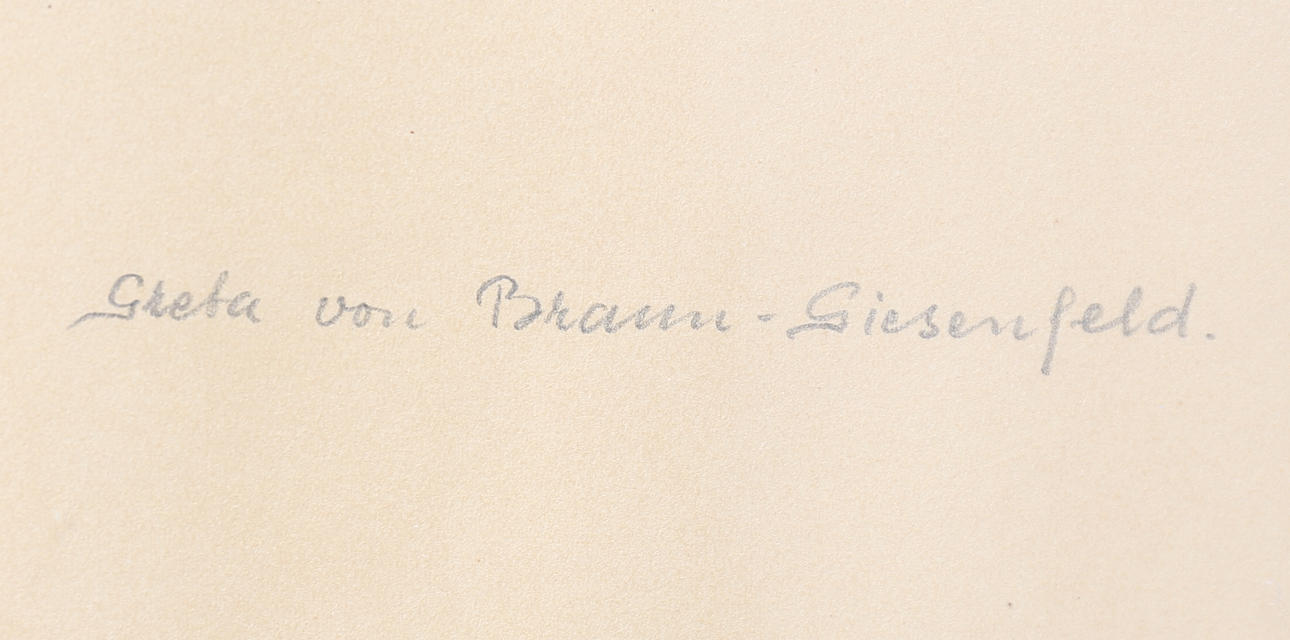 Greta von Braun-Giesenfeld.